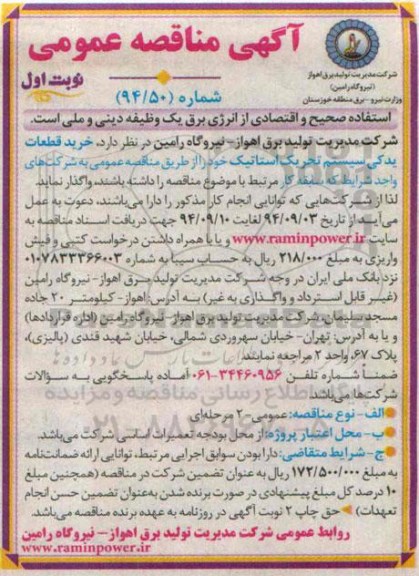 آگهی مناقصه عمومی
نوبت اول
شماره (۹۴/۵۰)
شرکت مدیریت تولید برق اهواز
(نیروگاه رامین)
وزارت نیرو - برق منطقه خوزستان
استفاده صحیح و اقتصادی از انرژی برق یک وظیفه دینی و ملی است.
شرکت مدیریت تولید برق اهواز - نیروگاه رامین در نظر دارد، خرید قطعات
یدکی سیستم تحریک استاتیک خود را از طریق مناقصه عمومی به شرکت‌های
واجد شرایط که سابقه کار مرتبط با موضوع مناقصه را داشته باشند، واگذار نماید.
لذا از شرکت‌هایی که توانایی انجام کار مذکور را دارا می‌باشند، دعوت به عمل
می‌آید از تاریخ ۹۴/۰۹/۰۳ لغایت ۹۴/۰۹/۱۰ جهت دریافت اسناد مناقصه به
سایت www.raminpower.ir و یا با همراه داشتن درخواست کتبی و فیش
واریزی به مبلغ ۲۱۸/۰۰۰ ریال به حساب سیبا به شماره ۰۱۰۷۸۳۳۳۶۶۰۰۳
نزد بانک ملی ایران در وجه شرکت مدیریت تولید برق اهواز - نیروگاه رامین
(غیر قابل استرداد و واگذاری به غیر) به آدرس: اهواز - کیلومتر ۲۰ جاده
مسجدسلیمان، شرکت مدیریت تولید برق اهواز - نیروگاه رامین (اداره قراردادها)
و یا به آدرس: تهران - خیابان سهروردی شمالی، خیابان شهید قندی (پالیزی)،
پلاک ۶۷، واحد ۲ مراجعه نمایند.
ضمناً شماره تلفن ۳۴۴۶۰۹۵۶-۰۶۱ آماده پاسخگویی به سؤالات
شرکت‌ها می‌باشد.
الف - نوع مناقصه: عمومی - ۲ مرحله‌ای
ب - محل اعتبار پروژه: از محل بودجه تعمیرات اساسی شرکت می‌باشد.
ج - شرایط متقاضی: دارا بودن سوابق اجرایی مرتبط، توانایی ارائه ضمانت‌نامه
به مبلغ ۱۷۲/۵۰۰/۰۰۰ ریال به عنوان تضمین شرکت در مناقصه (همچنین مبلغ
۱۰ درصد کل مبلغ پیشنهادی در صورت برنده شدن به عنوان تضمین حسن انجام
تعهدات) حق چاپ ۲ نوبت آگهی در روزنامه به عهده برنده مناقصه می‌باشد.
روابط عمومی شرکت مدیریت تولید برق اهواز - نیروگاه رامین
www.raminpower.ir